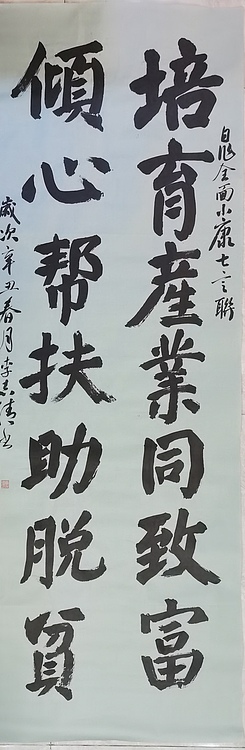 自作全面小康七言聯
培育産業同致富
傾心帮扶助脱貧
歲次辛丑春月李志清书